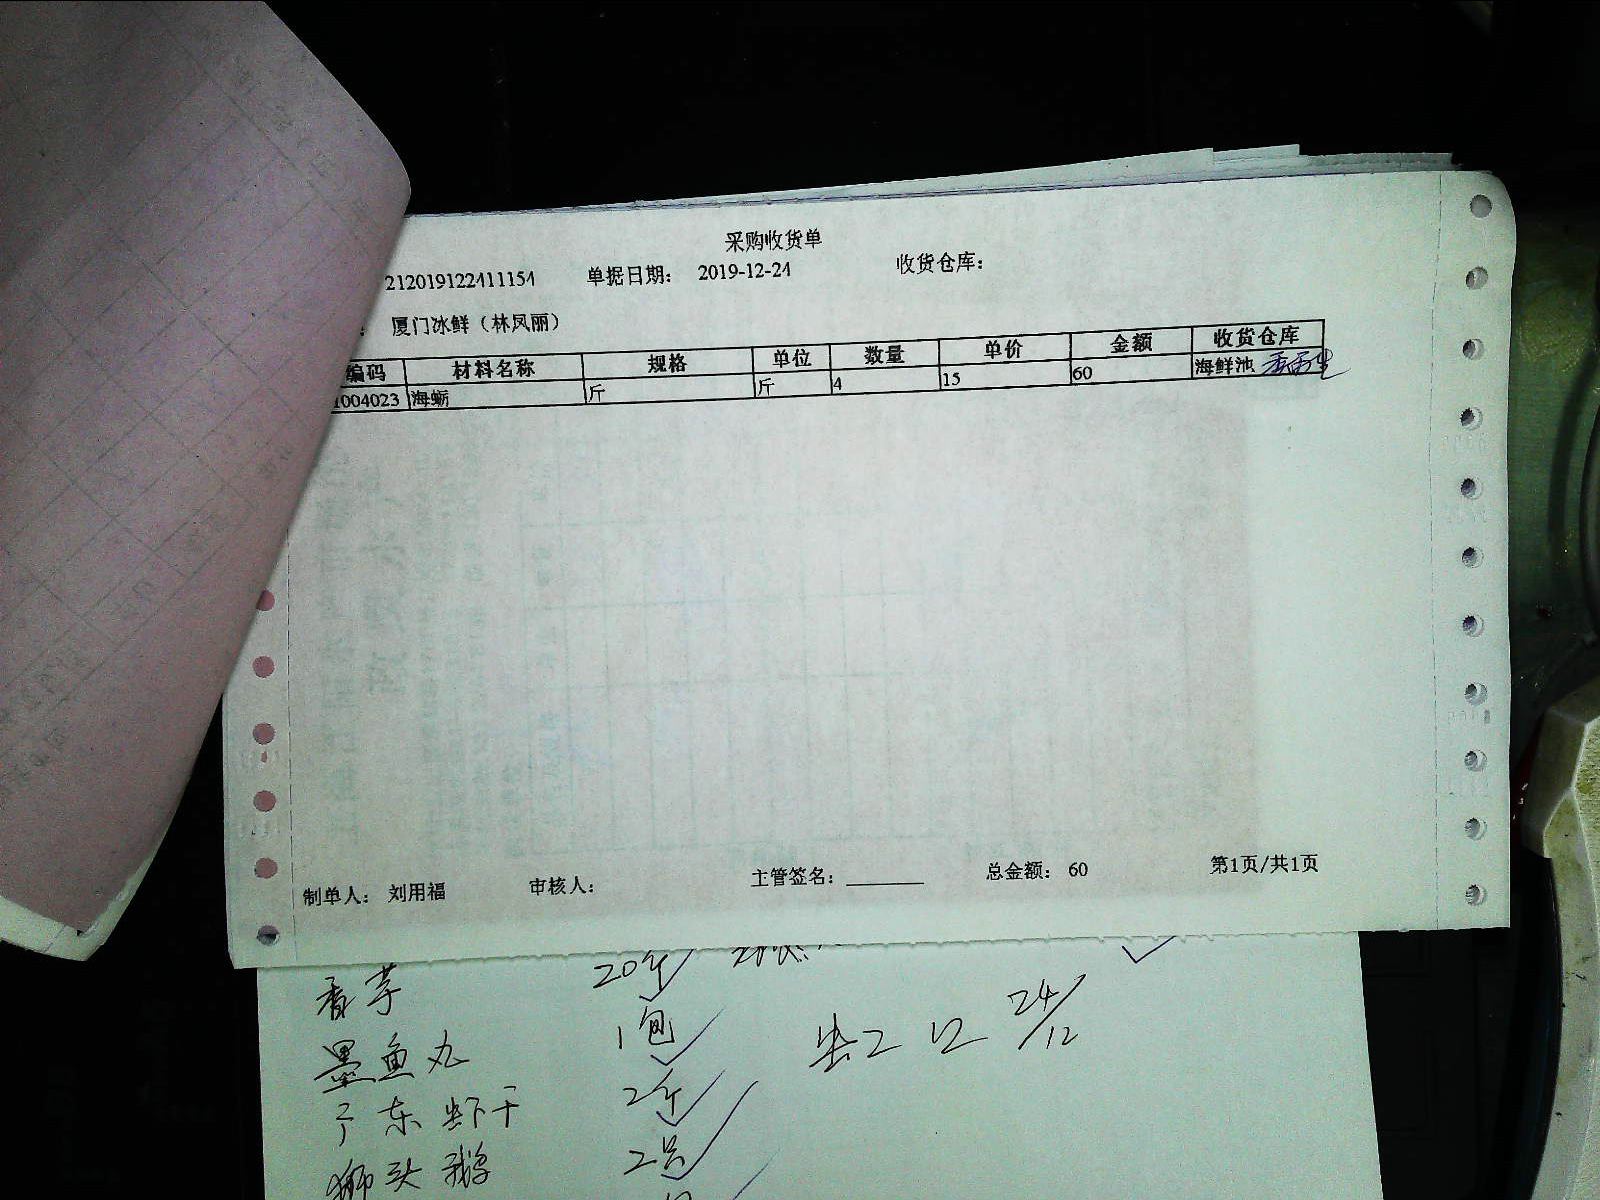 采购收货单
212019122411154 单据日期： 2019-12-24 收货仓库：
： 厦门冰鲜（林凤丽）
编码 材料名称 规格 单位 数量 单价 金额 收货仓库
1004023 海蛎 斤 斤 4 15 60 海鲜池
制单人： 刘用福 审核人： 主管签名：________ 总金额： 60 第1页/共1页
香芋 20斤
墨鱼丸 1包 24/12
广东虾干 2斤
狮头鹅 2只